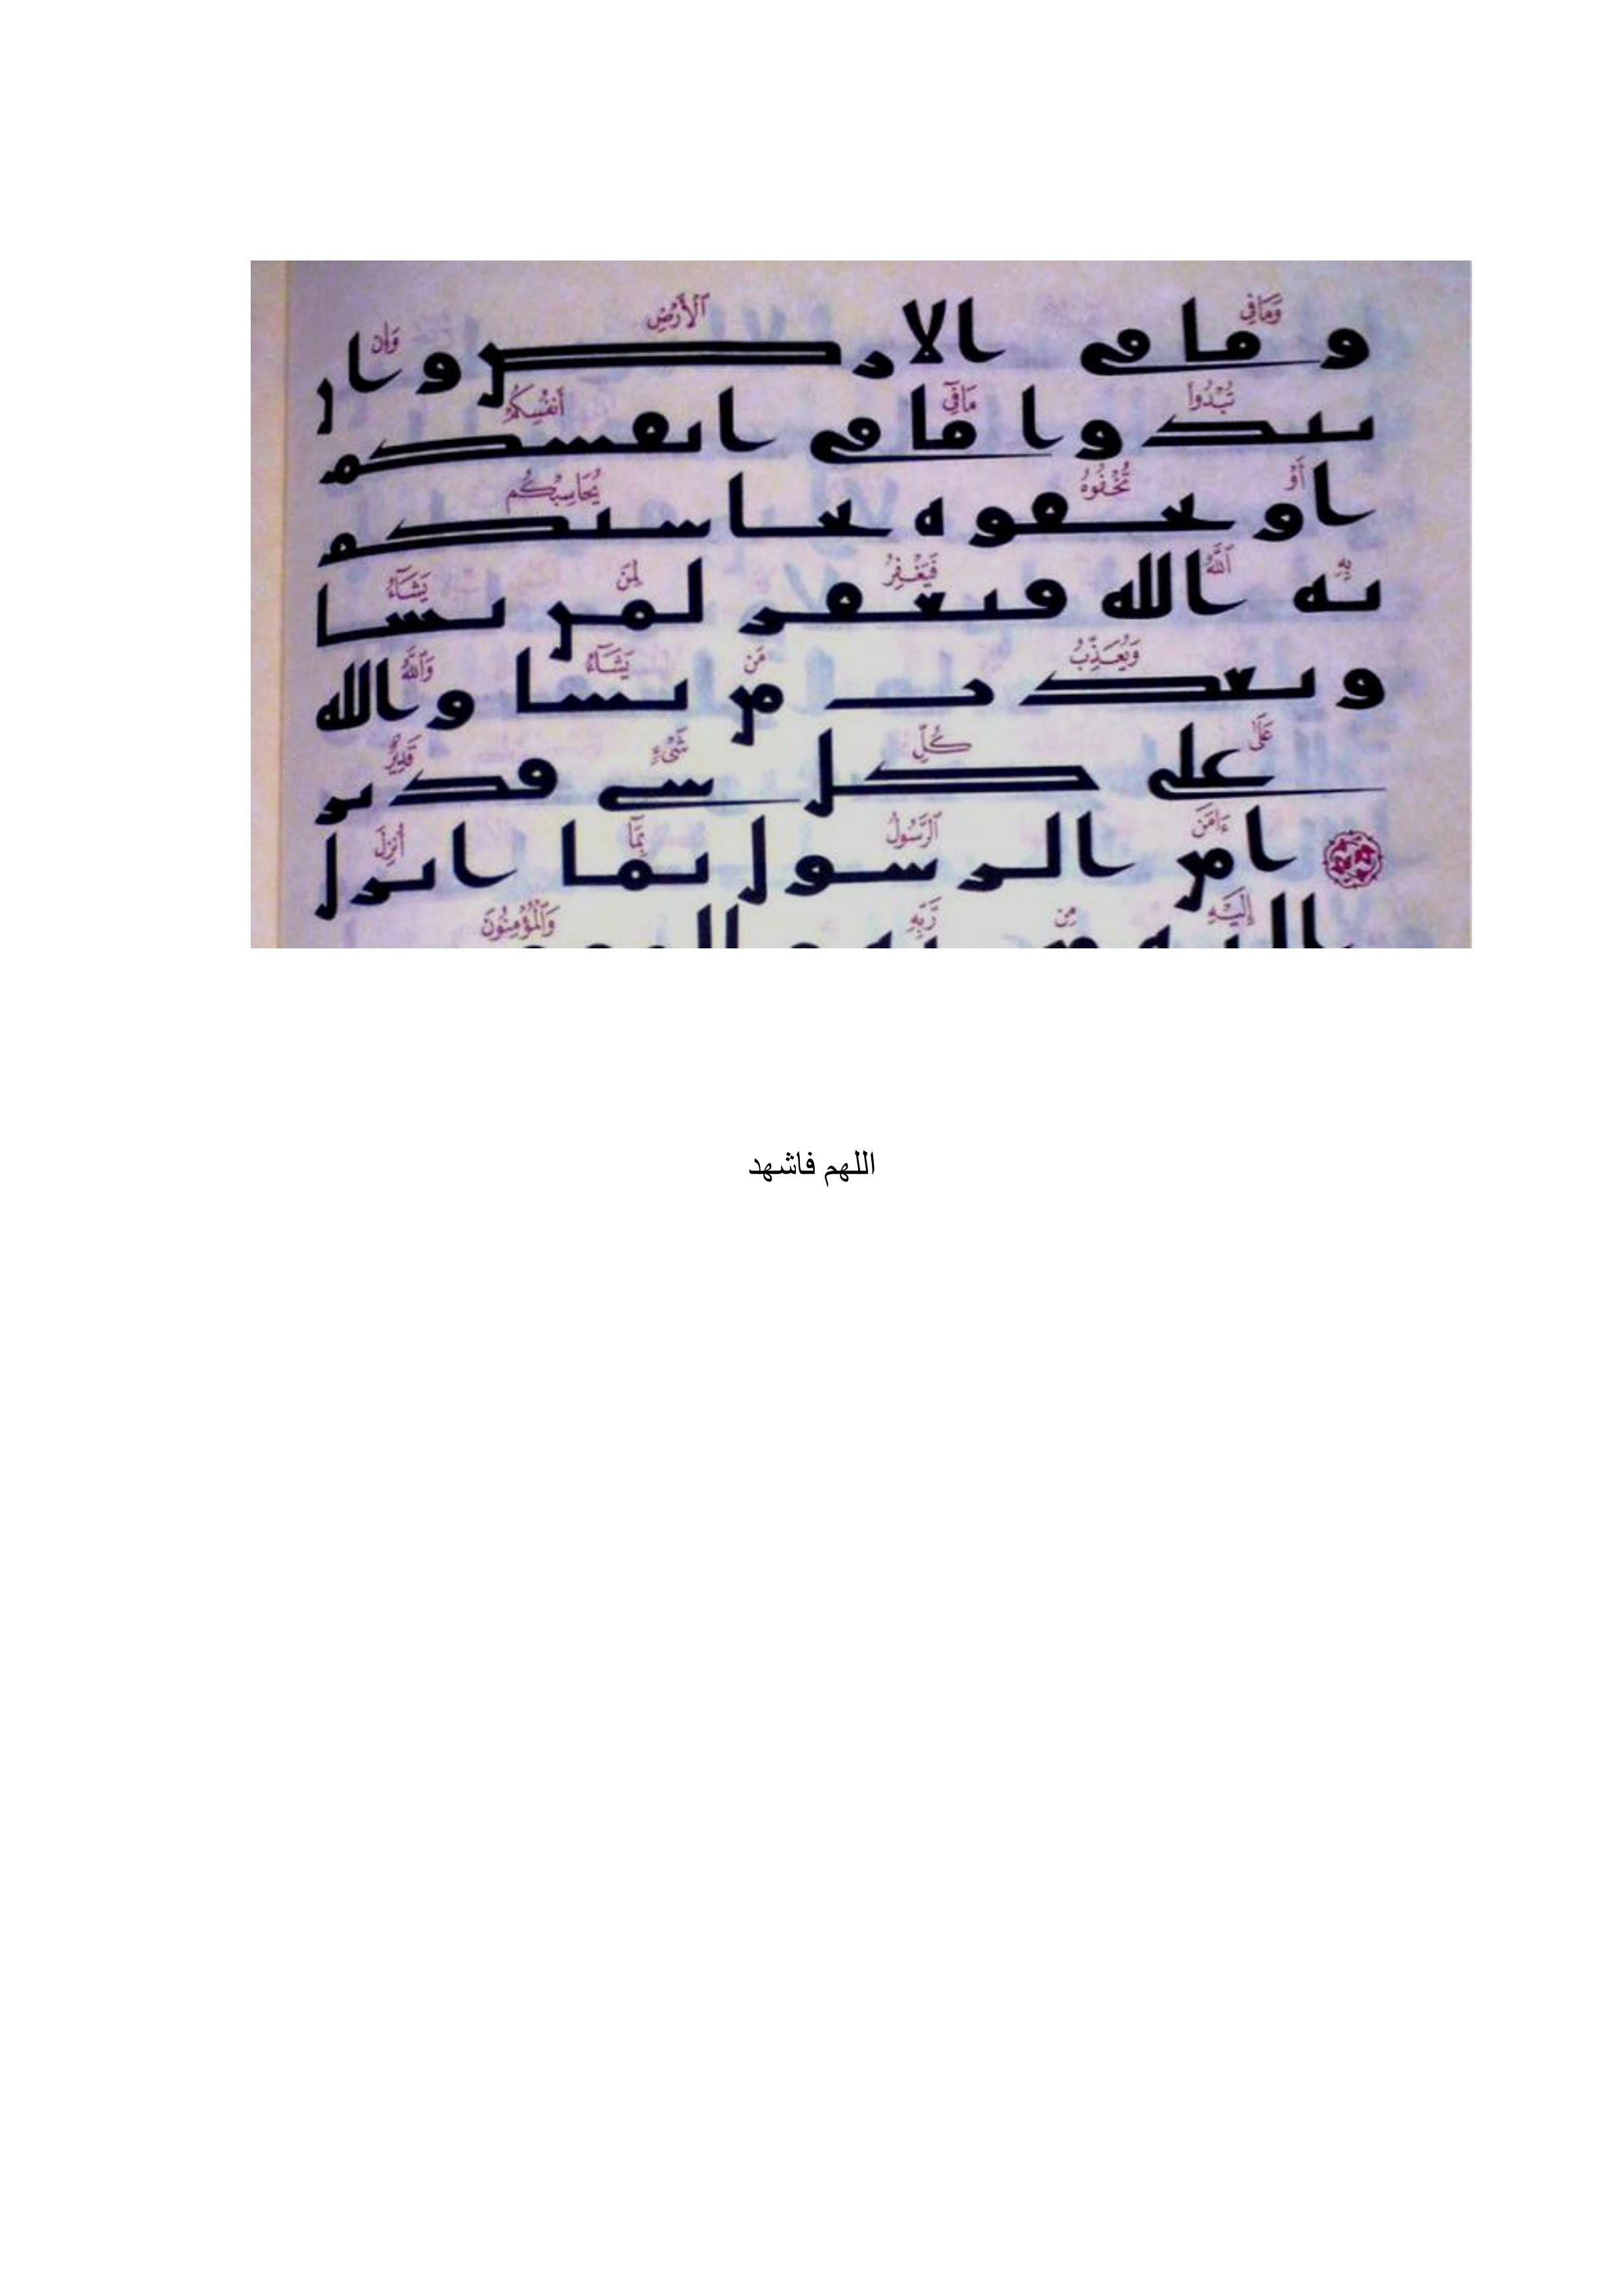 وما في الارض وان
تبدوا ما في انفسكم
او تخفوه يحاسبكم
به الله فيغفر لمن يشا
ويعذب من يشا والله
على كل شي قدير
امن الرسول بما انزل
إِلَيْهِ مِن رَّبِّهِ وَالْمُؤْمِنُونَ
اللهم فاشهد